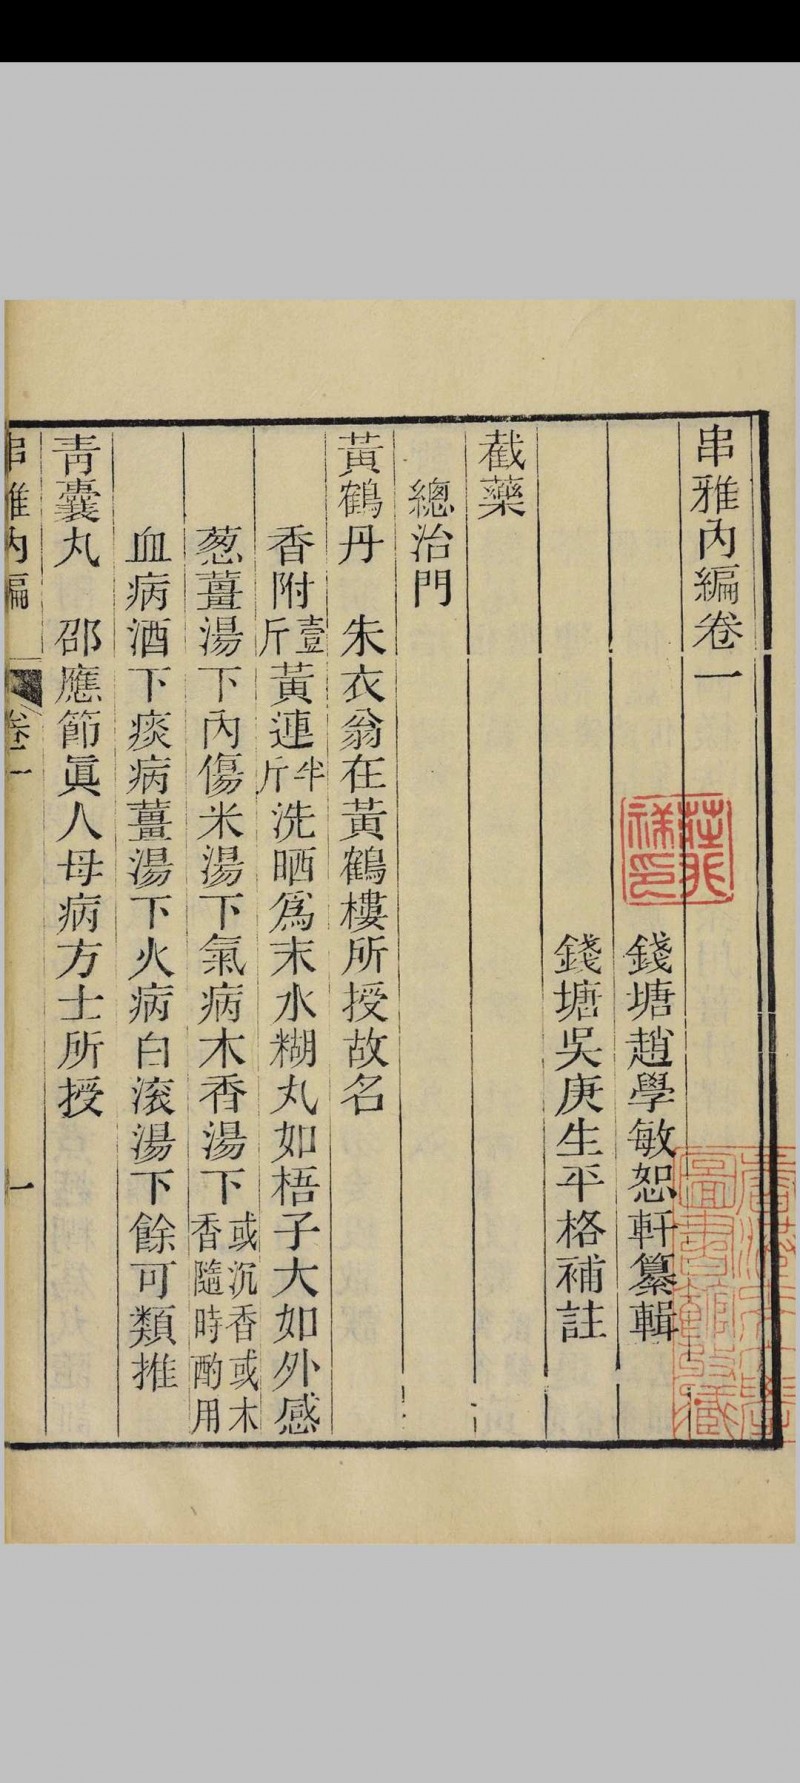 串雅內編卷一
錢塘趙學敏恕軒纂輯
錢塘吳庚生平格補註
截藥
總治門
黃鶴丹　朱衣翁在黃鶴樓所授故名
香附壹斤黃連半斤洗晒為末水糊丸如梧子大如外感
葱薑湯下內傷米湯下氣病木香湯下或沉香或木香隨時酌用
血病酒下痰病薑湯下火病白滚湯下餘可類推
靑囊丸　邵應節眞人母病方士所授
串雅內編　卷一　一